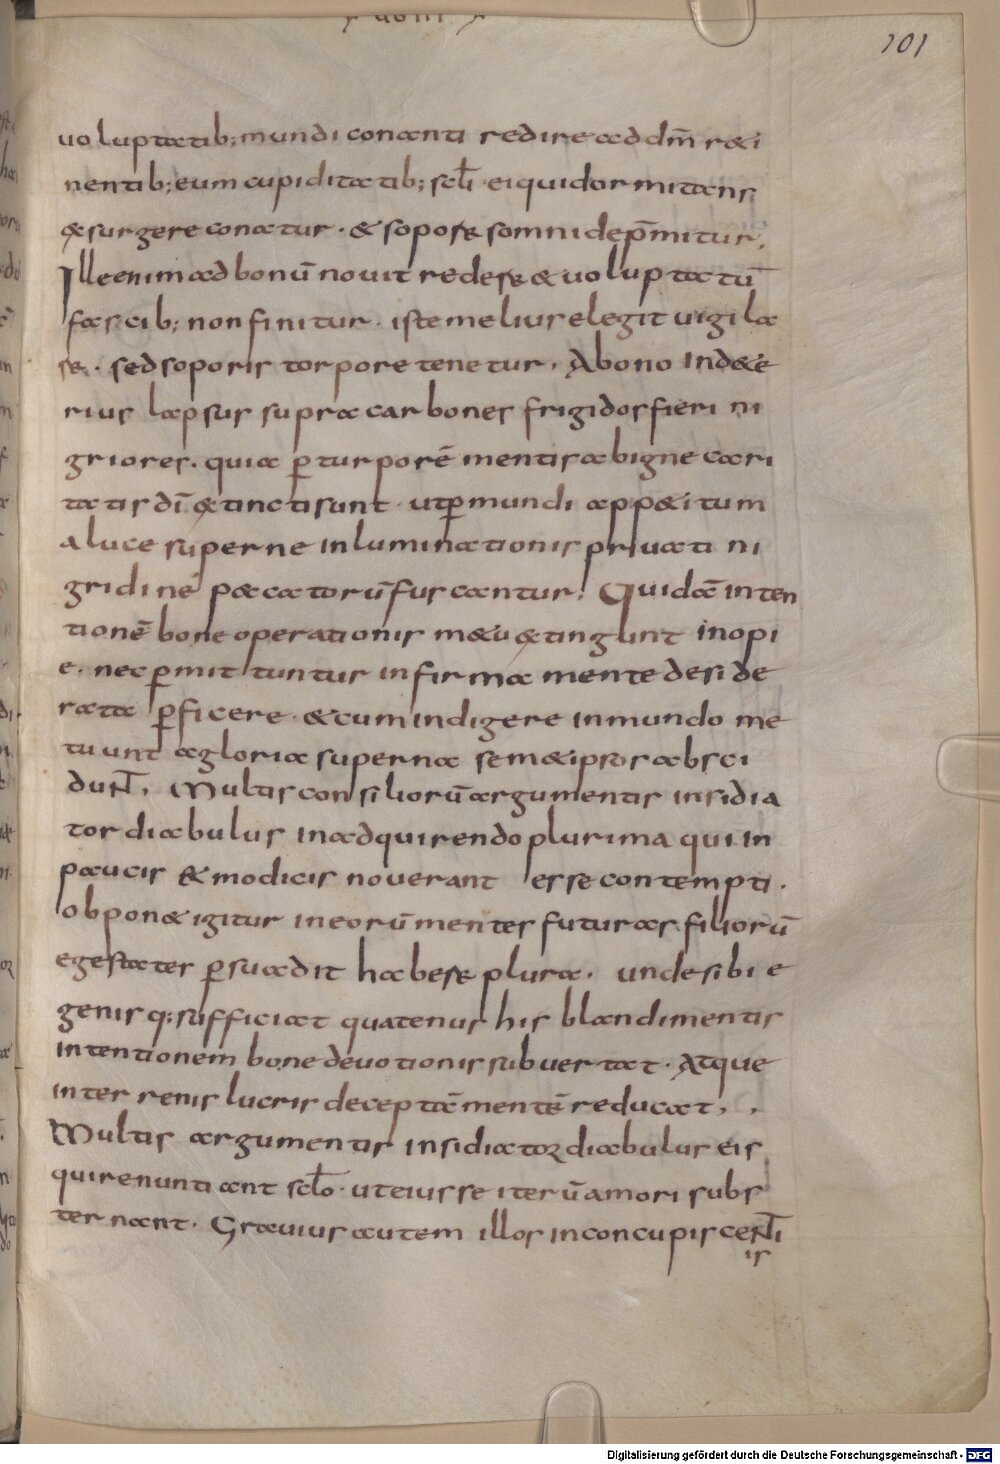 101
uoluptatib; mundi conanti redire ad dm̄ r&i
nentib; eum cupiditatib; scl̄i · ei qui dormitans
& surgere conatur · & sopore somni dep̄mitur,
Ille enim ad bonū nouit redere & uoluptatū
fascib; non finitur · iste melius elegit uigila
re · sed soporis torpore tenetur, A bono ind&e
rius lapsus supra carbones frigidos fieri ni
griores. quia ꝑ turporē mentis ab igne cari
tatis dī &tincti sunt · ut ꝑ mundi app&itum
a luce superne inluminationis priuati ni
gridinē paecatorū fuscantur. Quidā inten
tionē bone operationis m&u &tingunt inopi
e. nec ꝑmittuntur infirma mente deside
rata ꝑficere · & cum indigere in mundo me
tuunt a gloria superna sem&ipsos absci
dun̄t, Multis consiliorū argumentis insidia
tor diabulus in adquirendo plurima qui in
paucis & modicis nouerant esse contempti ·
obpon& igitur in eorū mentes futuras filiorū
egestates ꝑsuadit habere plura. unde sibi e
genisq; sufficiat quatenus his blandimentis
intentionem bone deuotionis subuertat · Atque
in terrenis lucris deceptā mentē reducat, ,
Multis argumentis insidiator diabulus eis
qui renuntiant scl̄o · ut eius se iterū amori subs
ternant. Grauius autem illos in concupiscen̄ti
is
Digitalisierung gefördert durch die Deutsche Forschungsgemeinschaft - DFG